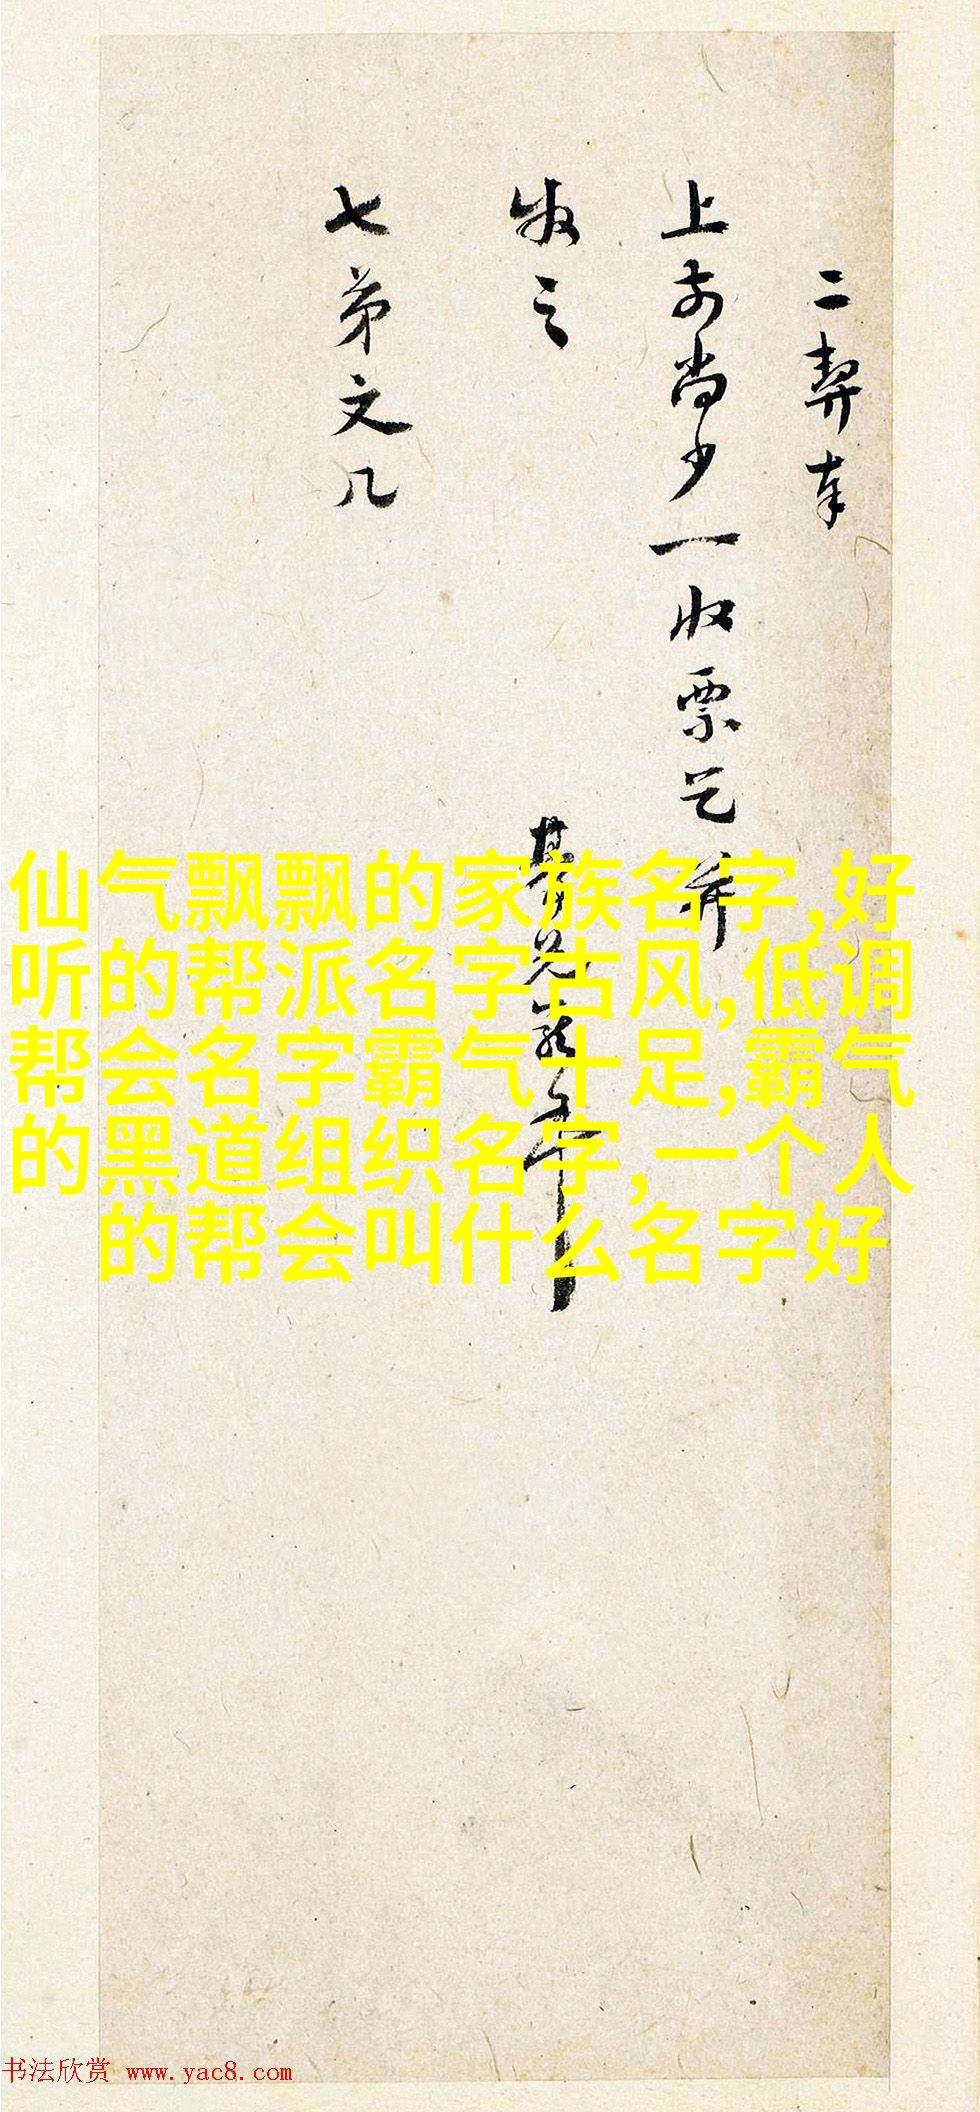 二契奉
上尚少一收票乞并
發之
七弟文几
期兄
仙气飘飘的家族名字,好
听的帮派名字古风,低调
帮会名字霸气十足,霸气
的黑道组织名字,一个人
的帮会叫什么名字好
书法欣赏 www.yac8.com